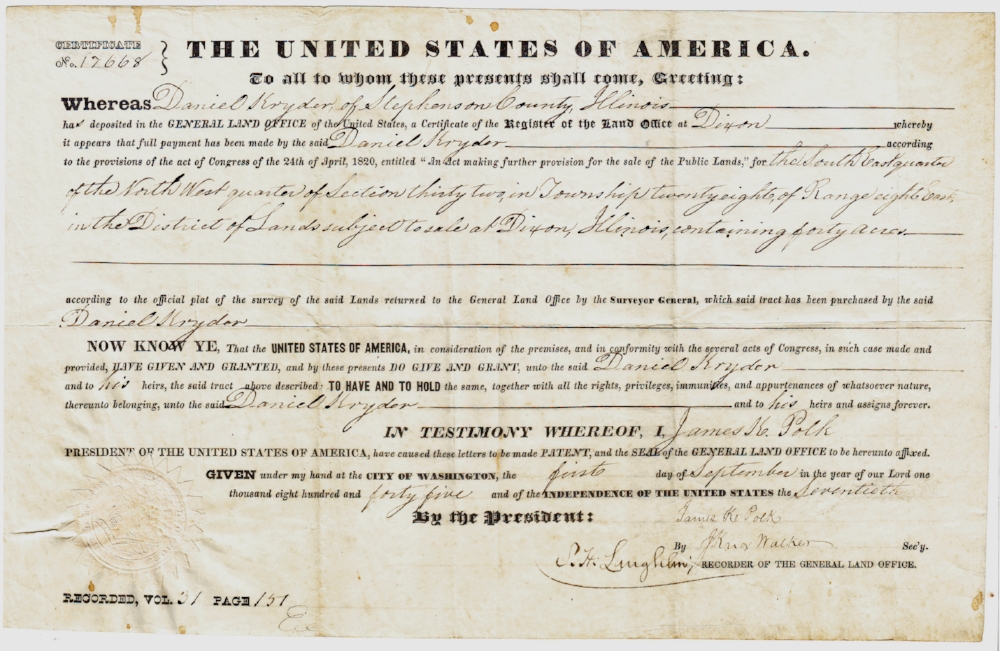 CERTIFICATE
No. 17668
THE UNITED STATES OF AMERICA.
To all to whom these presents shall come, Greeting:
Whereas Daniel Kryder, of Stephenson County, Illinois
has deposited in the GENERAL LAND OFFICE of the United States, a Certificate of the Register of the Land Office at Dixon whereby
it appears that full payment has been made by the said Daniel Kryder according
to the provisions of the act of Congress of the 24th of April, 1820, entitled "An Act making further provision for the sale of the Public Lands," for the South East quarter
of the North West quarter of Section thirty two, in Township twenty eight, of Range eight East,
in the District of Lands subject to sale at Dixon, Illinois, containing forty acres
according to the official plat of the survey of the said Lands returned to the General Land Office by the Surveyor General, which said tract has been purchased by the said
Daniel Kryder
NOW KNOW YE, That the UNITED STATES OF AMERICA, in consideration of the premises, and in conformity with the several acts of Congress, in such case made and
provided, HAVE GIVEN AND GRANTED, and by these presents DO GIVE AND GRANT, unto the said Daniel Kryder
and to his heirs, the said tract above described: TO HAVE AND TO HOLD the same, together with all the rights, privileges, immunities, and appurtenances of whatsoever nature,
thereunto belonging, unto the said Daniel Kryder and to his heirs and assigns forever.
IN TESTIMONY WHEREOF, I, James K. Polk
PRESIDENT OF THE UNITED STATES OF AMERICA, have caused these letters to be made PATENT, and the SEAL of the GENERAL LAND OFFICE to be hereunto affixed.
GIVEN under my hand at the CITY OF WASHINGTON, the first day of September in the year of our Lord one
thousand eight hundred and forty five and of the INDEPENDENCE OF THE UNITED STATES the Seventieth
By the President: James K. Polk
By J Knox Walker Sec'y.
S. H. Laughlin, RECORDER OF THE GENERAL LAND OFFICE.
RECORDED, VOL. 31 PAGE 157